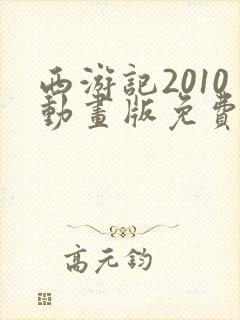 西游記2010
動畫版免費
高元鈞